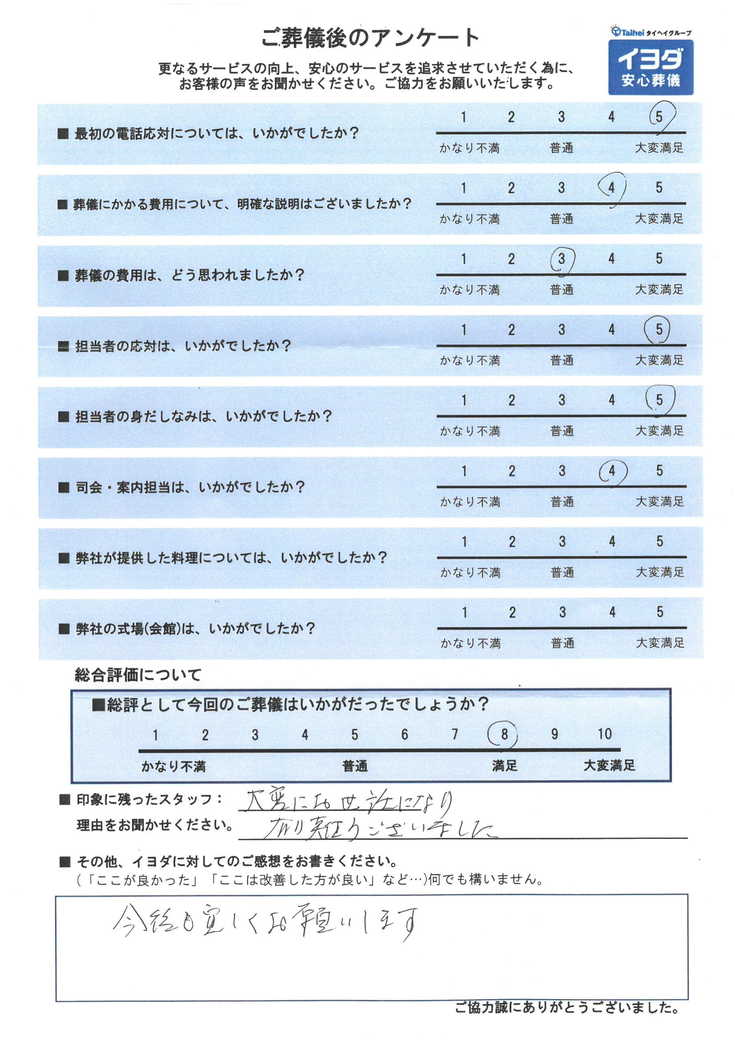 ご葬儀後のアンケート
Taihei タイヘイグループ
イヨダ
安心葬儀
更なるサービスの向上、安心のサービスを追求させていただく為に、
お客様の声をお聞かせください。ご協力をお願いいたします。
■ 最初の電話応対については、いかがでしたか？
1 2 3 4 5
かなり不満 普通 大変満足
■ 葬儀にかかる費用について、明確な説明はございましたか？
1 2 3 4 5
かなり不満 普通 大変満足
■ 葬儀の費用は、どう思われましたか？
1 2 3 4 5
かなり不満 普通 大変満足
■ 担当者の応対は、いかがでしたか？
1 2 3 4 5
かなり不満 普通 大変満足
■ 担当者の身だしなみは、いかがでしたか？
1 2 3 4 5
かなり不満 普通 大変満足
■ 司会・案内担当は、いかがでしたか？
1 2 3 4 5
かなり不満 普通 大変満足
■ 弊社が提供した料理については、いかがでしたか？
1 2 3 4 5
かなり不満 普通 大変満足
■ 弊社の式場(会館)は、いかがでしたか？
1 2 3 4 5
かなり不満 普通 大変満足
総合評価について
■総評として今回のご葬儀はいかがだったでしょうか？
1 2 3 4 5 6 7 8 9 10
かなり不満 普通 満足 大変満足
■ 印象に残ったスタッフ： 大変にお世話になり
理由をお聞かせください。 有り難うございました
■ その他、イヨダに対してのご感想をお書きください。
(「ここが良かった」「ここは改善した方が良い」など…)何でも構いません。
今後も宜しくお願いします
ご協力誠にありがとうございました。